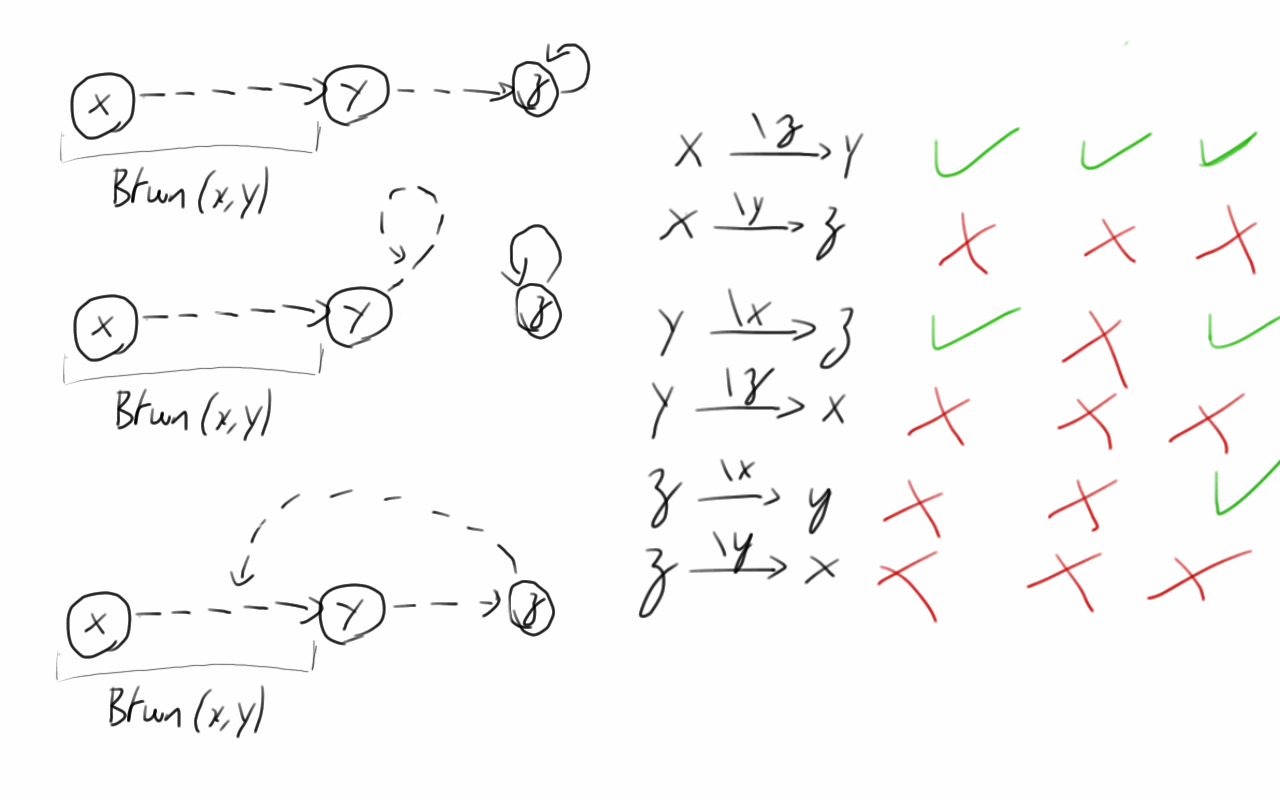 x y z
Btwn (x,y)
x y z
Btwn (x,y)
x y z
Btwn (x,y)
x \z→ y ✓ ✓ ✓
x \y→ z ✗ ✗ ✗
y \x→ z ✓ ✗ ✓
y \z→ x ✗ ✗ ✗
z \x→ y ✗ ✗ ✓
z \y→ x ✗ ✗ ✗